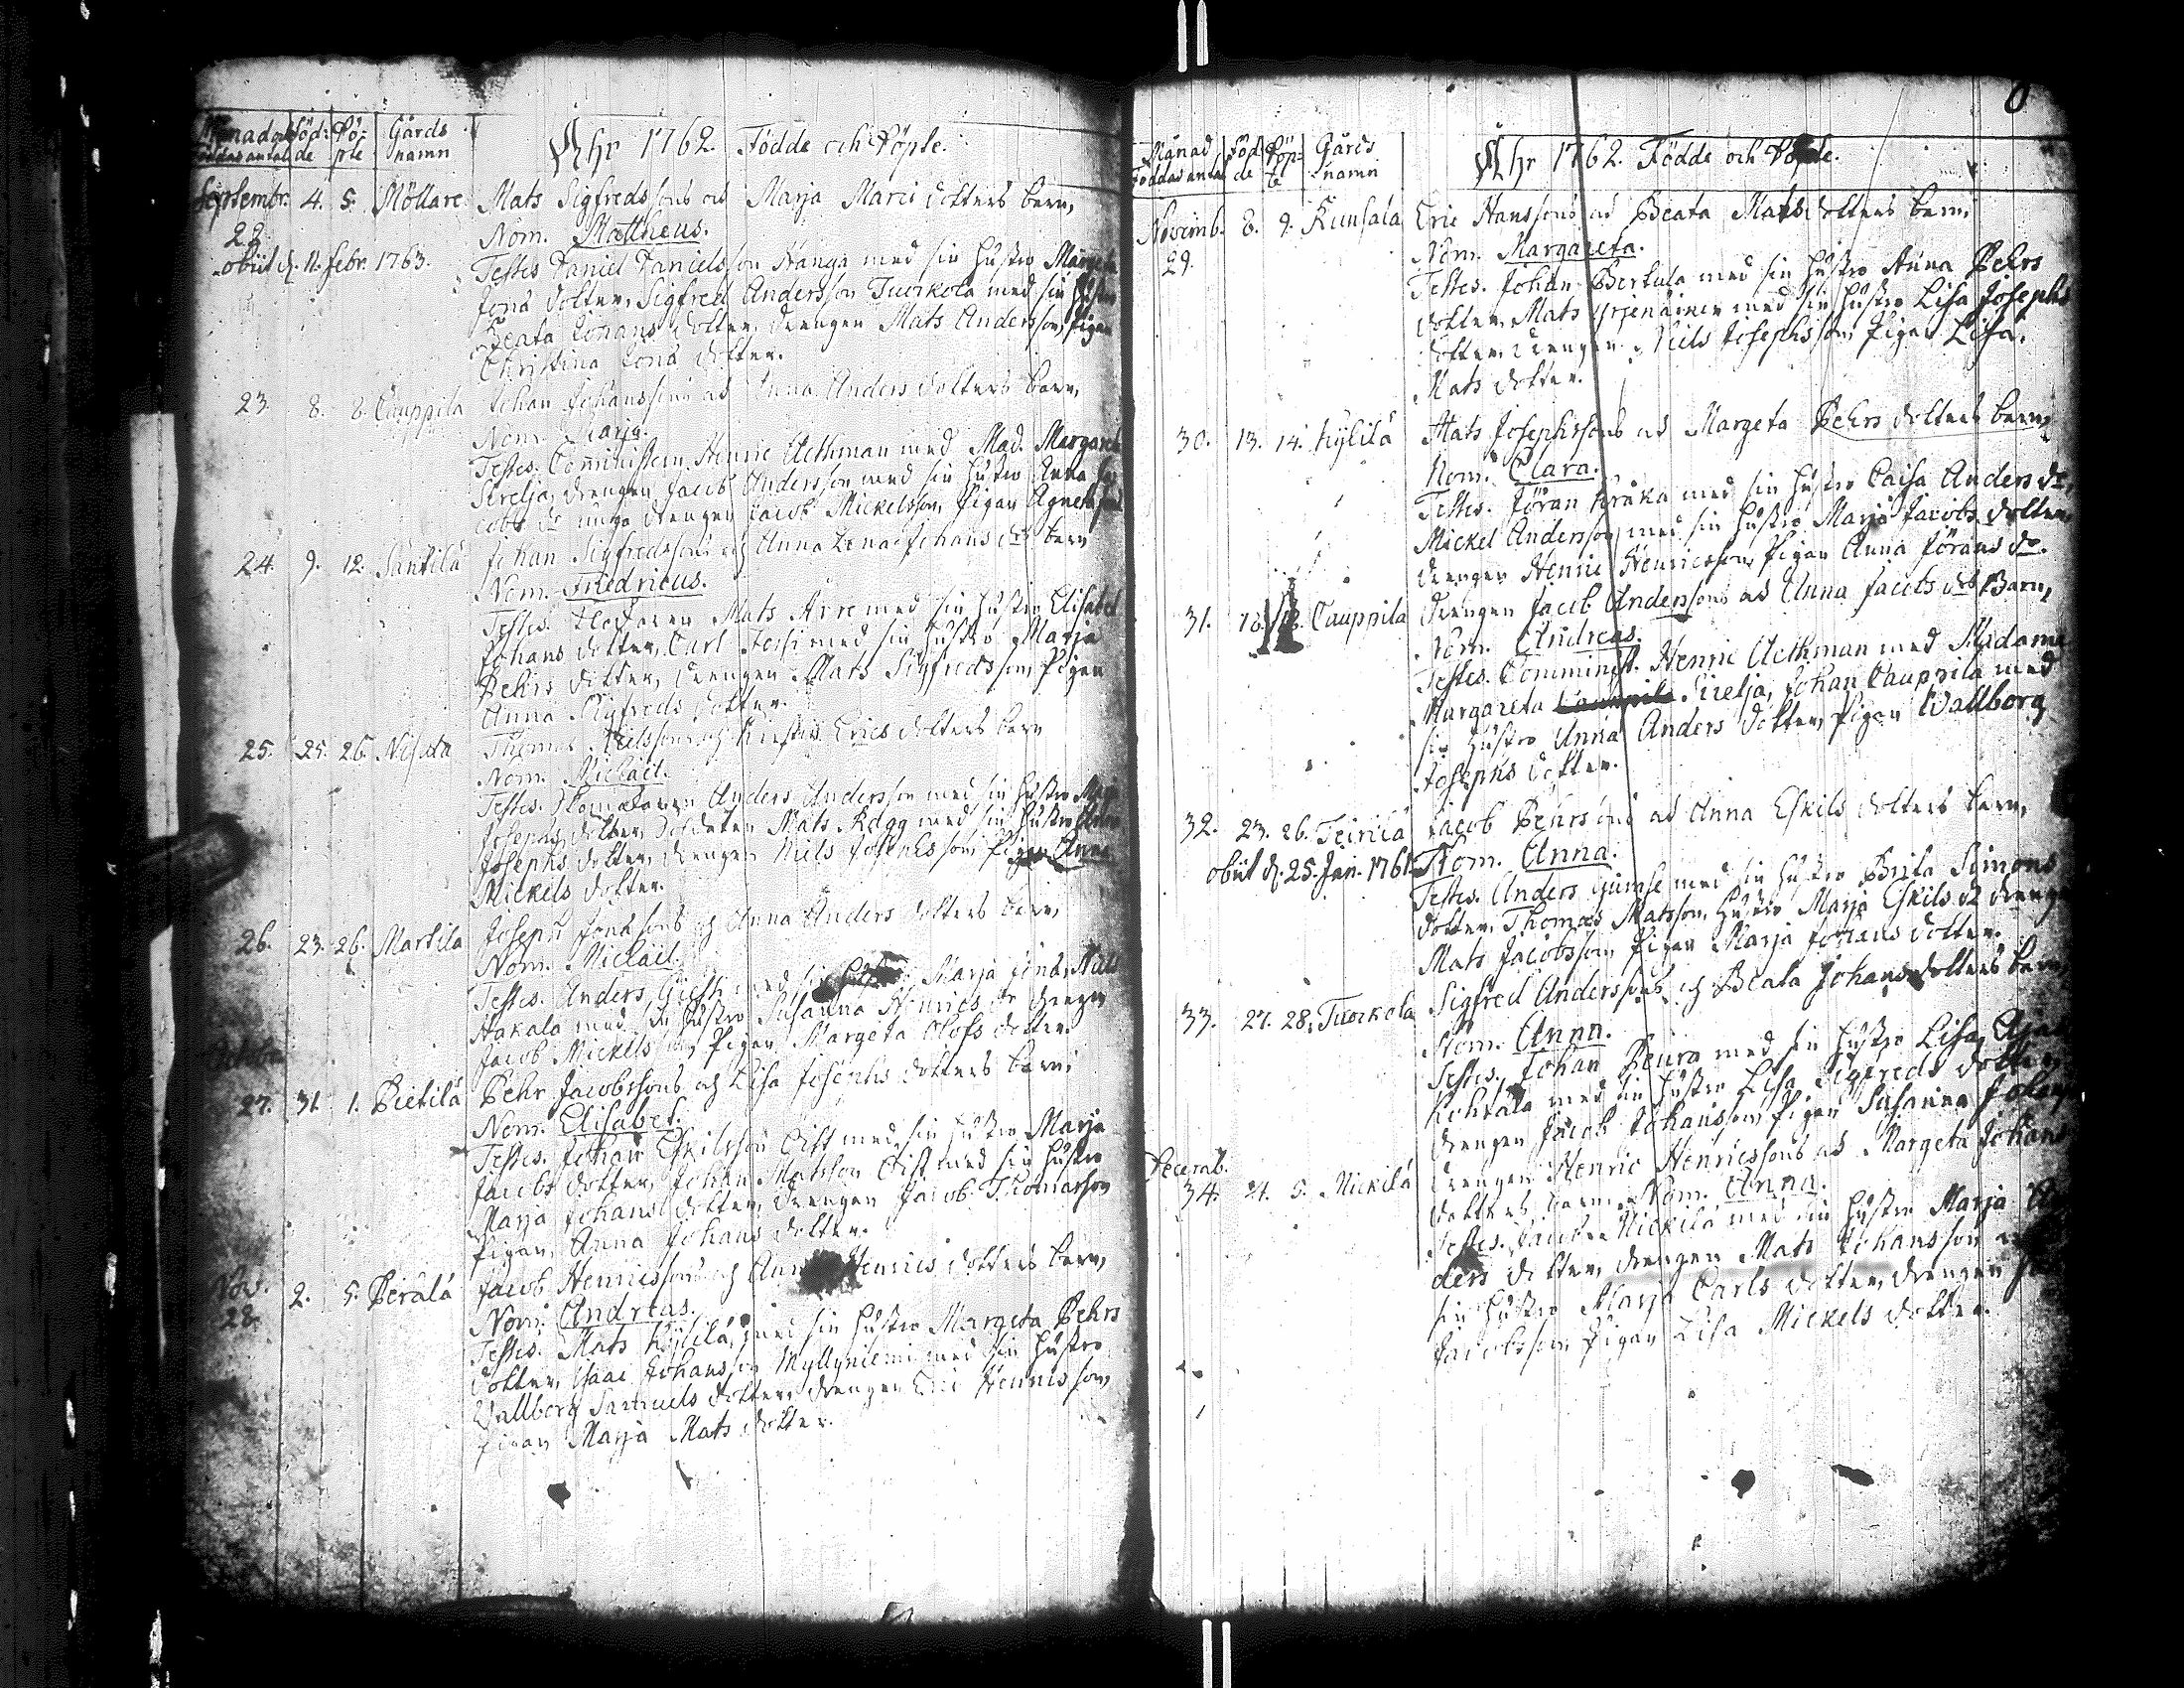 Månad Föd: Döp= Gårds
Föddas antal de pte namn
Åhr 1762. Födde och Döpte.
Septembr. 4. 5. Möllare Mats Sigfredssons och Marja Marci dotters barn,
22 Nom. Mattheus.
obiit d. 11. Febr. 1763. Testes Daniel Danielsson Hanga med sin hustro Margeta
Jona dotter, Sigfred Andersson Tuorkola med sin hustro
Beata Johans dotter, drengen Mats Andersson, pigan
Christina Jona dotter.
23. 8. 8. Cauppila Johan Johanssons och Anna Anders dotters barn,
Nom. Marja.
Testes. Comministern Henric Aethman med Mad. Margareta
Sirelja, drengen Jacob Andersson med sin hustro Anna Ja=
cobs dr unga drengen Jacob Mickelsson, Pigan Agneta
24. 9. 12. Santila Johan Sigfredssons och Anna Lena Johans drs barn
Nom. Fredricus.
Testes. Mats Arre med sin hustro Elisabet
Johans dotter, Carl med sin hustro Marja
Pehrs dotter, drengen Mats Sigfredsson, Pigan
Anna Sigfreds dotter.
25. 25. 26. Nisula Thomas Nilssons och Erics dotters barn
Nom. Michaël.
Testes. Anders Andersson med sin hustro Marja
Josephs dotter, Soldaten Mats Rågg med sin hustro Anna
Josephs dotter, drengen Niels Josephsson, Pigan Anna
Mickels dotter.
26. 23. 26. Martila Joseph Jonassons och Anna Anders dotters barn,
Nom. Michaël.
Testes. Anders med sin hustro Marja Jona, Niels
Hakala med sin hustro Susanna Henrics dr drengen
Jacob Mickelsson, Pigan Margeta Olofs dotter.
October
27. 31. 1. Pietilä Pehr Jacobssons och Lisa Josephs dotters barn,
Nom. Elisabet.
Testes. Johan Eskilsson med sin hustro Marja
Jacobs dotter, Johan Matsson med sin hustro
Marja Johans dotter, drengen Jacob Thomasson
pigan Anna Johans dotter.
Nov. 2. 5. Perälä Jacob Henricssons och Anna Henrics dotters barn,
28. Nom. Andreas.
Testes. Mats Kylilä, med sin hustro Margeta Pehrs
dotter, Isaac Johansson Myllyniemi med sin hustro
Wallborg Samuels dotter, drengen Eric Henricsson,
pigan Marja Mats dotter.
Månad Föd Döp= Gårds
Föddas antal de te namn
Åhr 1762. Födde och Döpte.
Novemb. 8. 9. Runsala Eric Hanssons och Beata Mats dotters barn,
29. Nom. Margareta.
Testes. Johan Bertula med sin hustro Anna Pehrs
dotter, Mats Yrjenäinen med sin hustro Lisa Josephs
dotter, drengen Niels Josephsson, Pigan Lisa
Mats dotter.
30. 13. 14. Kylilä Mats Josephssons och Margeta Pehrs dotters barn,
Nom. Clara.
Testes. Jöran Kråka med sin hustro Caisa Anders dr,
Mickel Andersson med sin hustro Marja Jacobs dotter,
drengen Henric Henricsson, Pigan Anna Jörans dr.
31. 18. Cauppila Drengen Jacob Anderssons och Anna Jacobs drs Barn,
Nom. Andreas.
Testes. Comminist. Henric Aethman med Madame
Margareta Sirelja, Johan Cauppila med
sin hustro Anna Anders dotter, Pigan Wallborg
Josephs dotter.
32. 23. 26. Teirilä Jacob Pehrssons och Anna Eskils dotters barn,
obiit d. 25. Jan. 1761. Nom. Anna.
Testes. Anders Gumse med sin hustro Brita Simons
dotter, Thomas Matsson, hustro Marja Eskils dr drengen
Mats Jacobsson, Pigan Marja Johans dotter.
33. 27. 28. Tuorkola Sigfred Anderssons och Beata Johans dotters barn,
Nom. Anna.
Testes. Johan Peura med sin hustro Lisa,
Kohtala med sin hustro Lisa Sigfreds dotter,
drengen Jacob Johansson, Pigan Susanna
Decemb.
34. 4. 5. Nickilä Drengen Henric Henricssons och Margeta Johans
dotters barn, Nom. Anna.
Testes. Jacob Nickilä med sin hustro Marja An
ders dotter, drengen Mats Johansson
sin hustro Marja Carls dotter, drengen
Jacobsson, Pigan Lisa Mickels dotter.